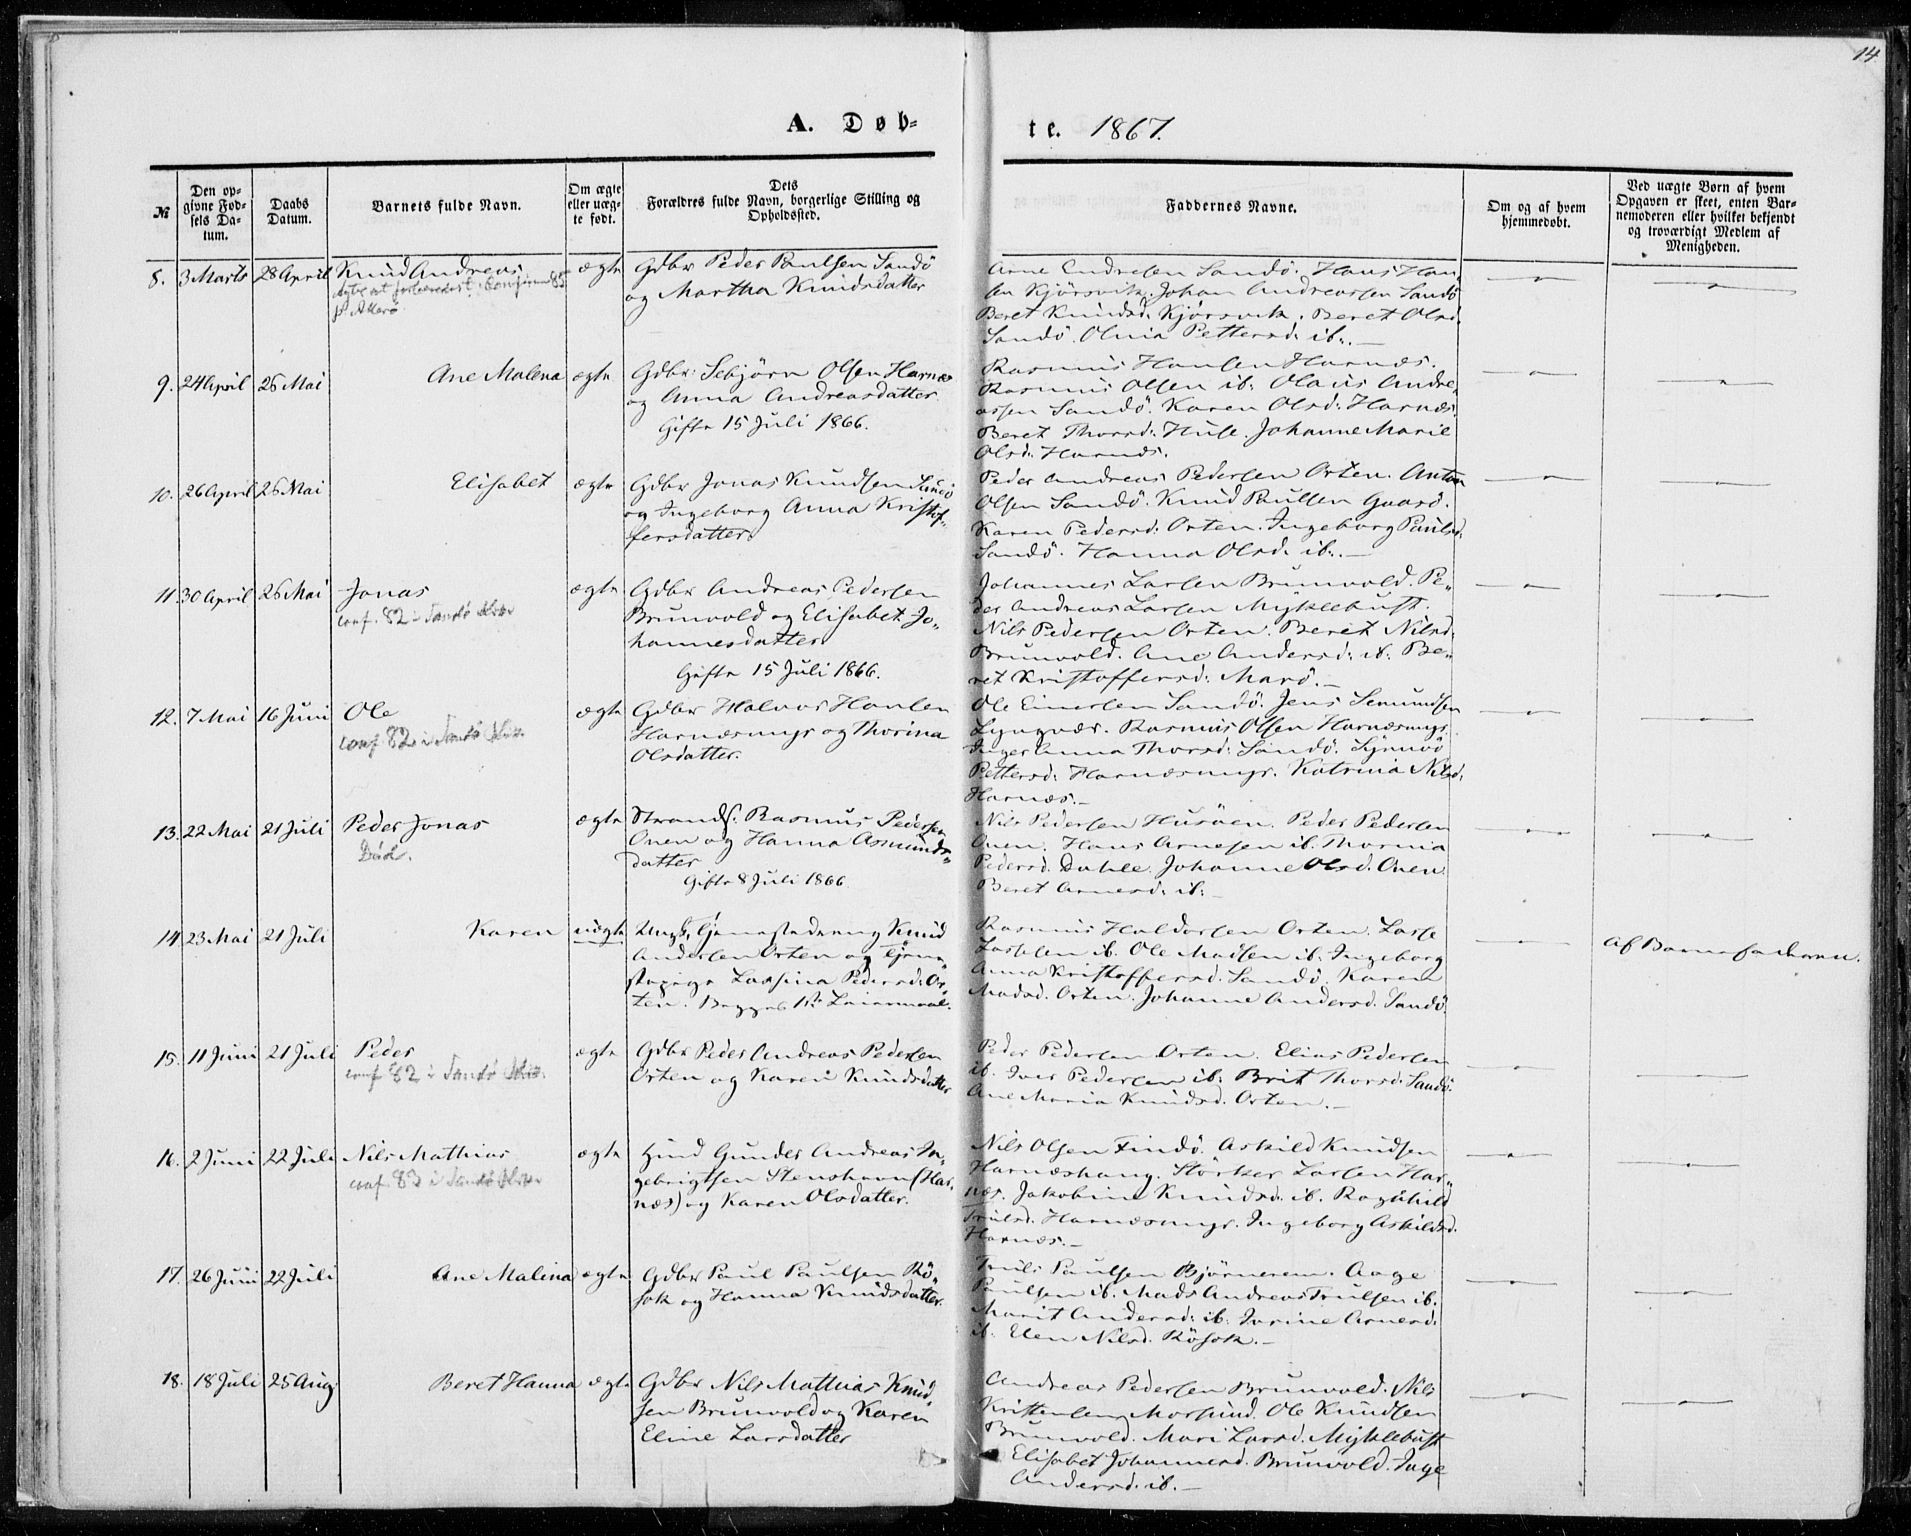 14
A. Døb-
te. 1867.
№
Den op-
givne Fød-
sels Da-
tum.
Daabs
Datum.
Barnets fulde Navn.
Om ægte
eller uæg-
te født.
Dets
Forældres fulde Navn, borgerlige Stilling og
Opholdssted.
Faddernes Navne.
Om og af hvem
hjemmedøbt.
Ved uægte Børn af hvem
Opgaven er skeet, enten Bar-
nemoderen eller hvilket bekjendt
og troværdigt Medlem af
Menigheden.
8. 3 Marts 28 April Knud Andreas ægte Gdbr Peder Paulsen Sandö
og Martha Knudsdatter
Arne Endresen Sandö. Hans Han-
sen Kjörsvik. Johan Andreassen Sandö
Beret Knudsd. Kjörsvik. Beret Olsd.
Sandö. Olina Pettersd. ib.
9. 24 April 26 Mai Ane Malena ægte Gdbr: Sebjørn Olsen Harnæs
og Anna Andreasdatter
Gifte 15 Juli 1866.
Rasmus Hansen Harnæs.
Rasmus Olsen ib. Olaus Andre-
assen Sandö. Karen Olsd: Harnæs.
Beret Thorsd: Huse. Johanne Marie
Olsd: Harnæs.
10. 26 April 26 Mai Elisabet ægte Gdbr Jonas Knudsen Sandö
og Ingeborg Anna Kristof-
fersdatter.
Peder Andreas Pedersen Orten. Anton
Olsen Sandö. Knud Paulsen Gaarö.
Karen Pedersd: Orten. Ingeborg Paulsd.
Sandö. Hanna Olsd. ib.
11. 30 April 26 Mai Jonas ægte Gdbr Andreas Pedersen
conf. 82 i Sandø Kirke
Brunvold og Elisabet Jo-
hannesdatter
Gifte 15 Juli 1866.
Johannes Larsen Brunvold. Pe-
der Andreas Larsen Myklebust.
Nils Pedersen Orten. Beret Nilsd.
Brunvold. Ane Andersd: ib. Be-
ret Kristoffersd: Marö.
12. 7 Mai 16 Juni Ole ægte Gdbr Halvor Hansen
conf 82 i Sandø Kirke
Harnæsmyr og Thorina
Olsdatter.
Ole Einersen Sandö. Jens Semundsen
Lyngvær. Rasmus Olsen Harnæsmyr.
Inger Anna Thorsd: Sandö. Synnöv
Pettersd: Harnæsmyr. Katrina Nilsd.
Harnæs.
13. 22 Mai 21 Juli Peder Jonas ægte Strands: Rasmus Pedersen
Död.
Onen og Hanna Asmunds-
datter
Gifte 8 Juli 1866
Nils Pedersen Husöen. Peder Pedersen
Onen. Hans Arnesen ib. Thorina
Pedersd. Dahle. Johanne Olsd. Onen.
Beret Arnesd: ib.
14. 23 Mai 21 Juli Karen uægte Ungk, Tjenestedreng Knud
Andersen Orten og Tjene-
stepige Lassina Pedersd: Or-
ten. Begges 1ste Leiermaal.
Rasmus Haldorsen Orten. Lasse
Lassesen ib. Ole Madsen ib. Ingeborg
Anna Kristoffersd. Sandö. Karen
Madsd. Orten. Johanne Andersd. Sandö.
Af Barnefaderen.
15. 11 Juni 21 Juli Peder ægte Gdbr Peder Andreas Pedersen
conf 82 i Sandø Kirke.
Orten og Karen Knudsdatter
Peder Pedersen Orten. Elias Pedersen
ib. Iver Pedersen ib: Brit Thorsd: Sandö.
Ane Maria Knudsd. Orten.
16. 2 Juni 22 Juli Nils Mathias ægte Hmd Gunder Andreas In-
conf. 83 i Sandø Kirke
gebrigtsen Stenshavn (Har-
næs) og Karen Olsdatter.
Nils Olsen Findö. Askild Knudsen
Harnæshaug. Störker Larsen Har-
næs. Jakobine Knudsd. ib. Ragnhild
Trulsd. Harnæsmyr. Ingeborg Askildsd.
Harnæs.
17. 26 Juni 22 Juli Ane Malina ægte Gdbr Paul Paulsen Rö-
sok og Hanna Knudsdatter.
Truls Paulsen Björnerem. Aage
Paulsen ib. Mads Andreas Trulsen ib.
Marit Andersd: ib. Jorine Arnesd:
ib. Elen Nilsd. Rösok.
18. 18 Juli 25 Aug. Beret Hanna ægte Gdbr Nils Mathias Knud-
sen Brunvold og Karen
Eline Larsdatter
Andreas Pedersen Brunvold. Nils
Kristensen Morsund. Ole Knudsen
Brunvold. Mari Larsd. Myklebust
Elisabet Johannesd. Brunvold. Inge
Andersd. ib.